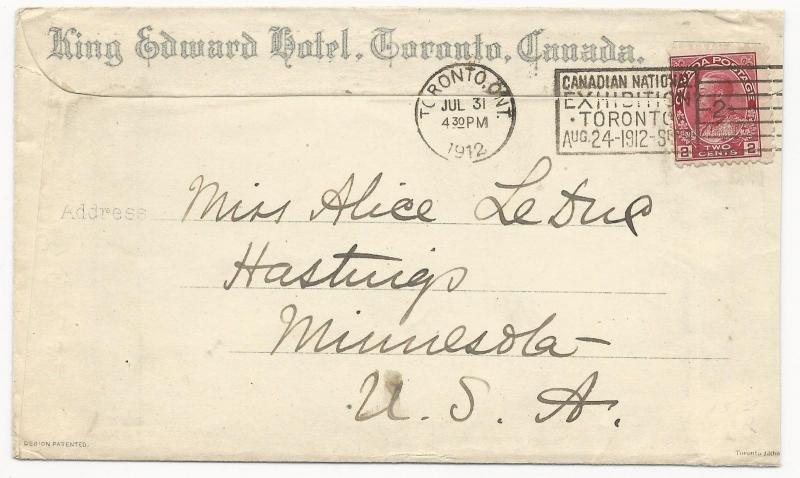 King Edward Hotel, Toronto, Canada.
TORONTO, ONT.
JUL 31
4 30 PM
1912
CANADIAN NATIONAL
EXHIBITION
· TORONTO
AUG. 24-1912-SEP
CANADA POSTAGE
2
2 TWO CENTS 2
Address Miss Alice LeDuc
Hastings
Minnesota
U. S. A.
DESIGN PATENTED.
Toronto Litho